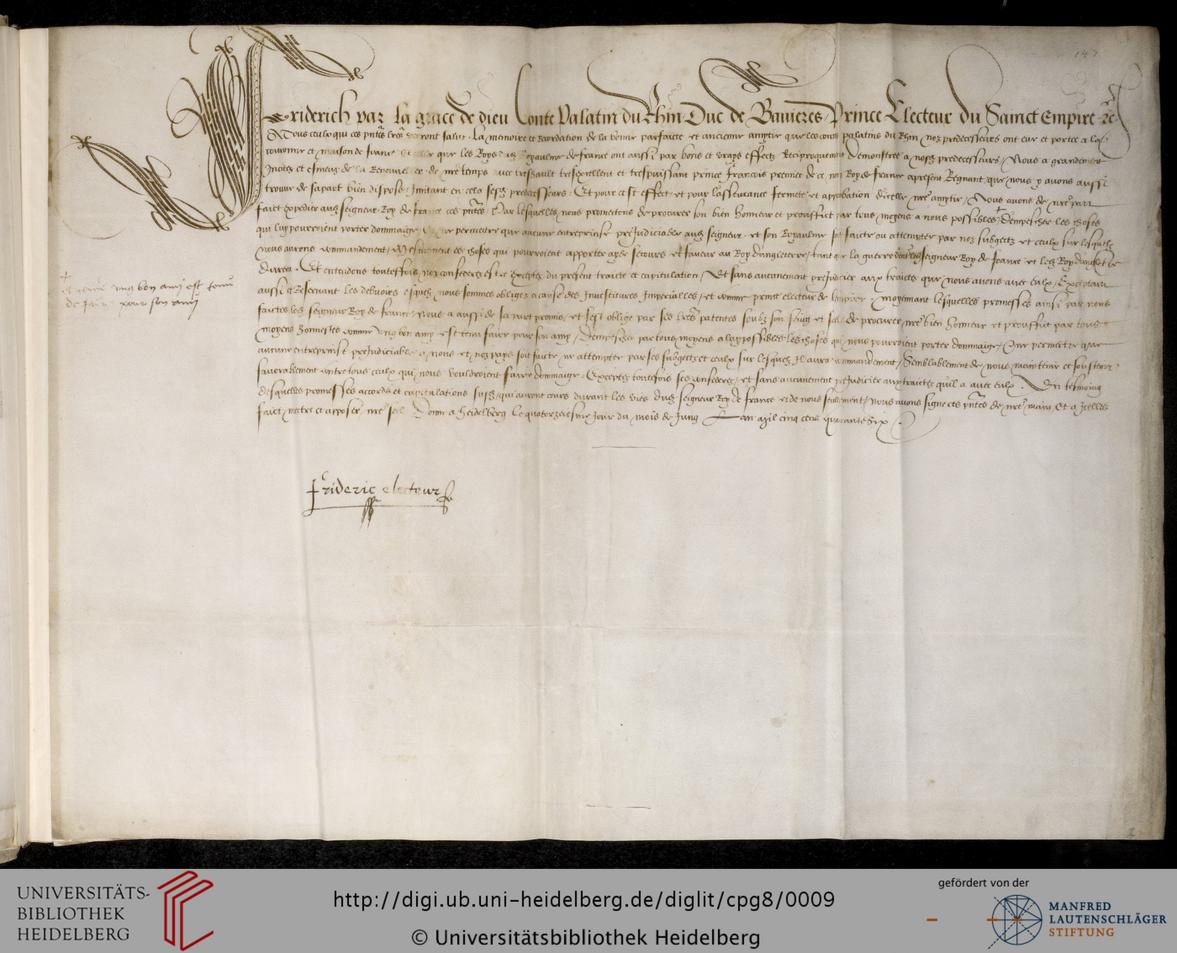 147
Friderich par la grace de dieu Conte Palatin du Rhin Duc de Bauieres Prince Electeur du Sainct Empire
A Tous ceulx qui ces pntes lres verront salut. La memoire et recordation de la bonne parfaicte et ancienne amytie que les contes palatins du Rhin, noz predecesseurs ont eue et portee a la
couronne et maison de france que les Roys dud Royaulme de france ont aussi par bons et vrays effectz Reciproquement demonstree a nosd predecesseurs, Nous a grandement
incitez et esmeuz de la Renouueller de nre temps auec treshault tresexcellent et trespuissant prince francois premier de ce nom Roy de france apresent Regnant, que nous y auons aussi
trouue de sa part bien dispose, Imitant en cela sesd predecesseurs. Et pour cest effect et pour lasseurance fermete et aprobation dicelle nre amytie, Nous auons de nre part
faict expedier aud seigneur Roy de france ces pntes, Par lesquelles nous promettons de procurer son bien honneur et prouffict par tous moyens a nous possibles, Dempescher les choses
qui luy pourroient porter dommaige, permettre que aucune entreprinse preiudiciable aud seigneur et son Royaulme soit faicte ou attemptee par noz subgectz et ceulx sur lesquelz
nous aurons commandement, Mesmement es choses qui pourroient apporter ayde secours et faueur au Roy dangleterre, tant que la guerre dentre led seigneur Roy de france et led Roy dangleterre
durera. Et entendons toutesfois noz confederez estre exceptez du present traicte et capitulation, Et sans aucunement preiudicier aux traictez que nous auons auec eulx, Exceptant
aussi et Reseruant les debuoirs esquelz nous sommes obligez a cause des Inuestitures Imperialles, et comme prince electeur de lempire, moyennant lesquelles promesses ainsi par nous
faictes led seigneur Roy de france Nous a aussi de sa part promis, et sest oblige par ses lres patentes soubz son seing et seel de procurer nre bien honneur et prouffict par tous
moyens honnestes comme ung bon amy est tenu faire pour son amy, Dempescher par tous moyens a luy possibles les choses qui nous pourroient porter dommaige, Ne permettre que
aucune entreprinse preiudiciable a nous et noz pays soit faicte ne attemptee par ses subgectz et ceulx sur lesquelz Il aura commandement, Semblablement de nous maintenir et soustenir
fauorablement contre tous ceulx qui nous vouldroient faire dommaige. Exceptez toutesfois ses confederez, et sans aucunement preiudicier aux traictez quil a auec eulx. En tesmoing
desquelles promesses accords et capitulations susd, qui auront cours durant les vies dud seigneur Roy de france et de nous seulement, Nous auons signe ces pntes de nre main, Et a Icelles
faict mettre et apposer nre seel. Donne a Heidelberg le quatorzeisme Jour du mois de Jung Lan mil cinq cens quarante six
comme ung bon amy est tenu
de faire pour son amy
Frideric electeur
UNIVERSITÄTS-
BIBLIOTHEK
HEIDELBERG
http://digi.ub.uni-heidelberg.de/diglit/cpg8/0009
© Universitätsbibliothek Heidelberg
gefördert von der
MANFRED
LAUTENSCHLÄGER
STIFTUNG